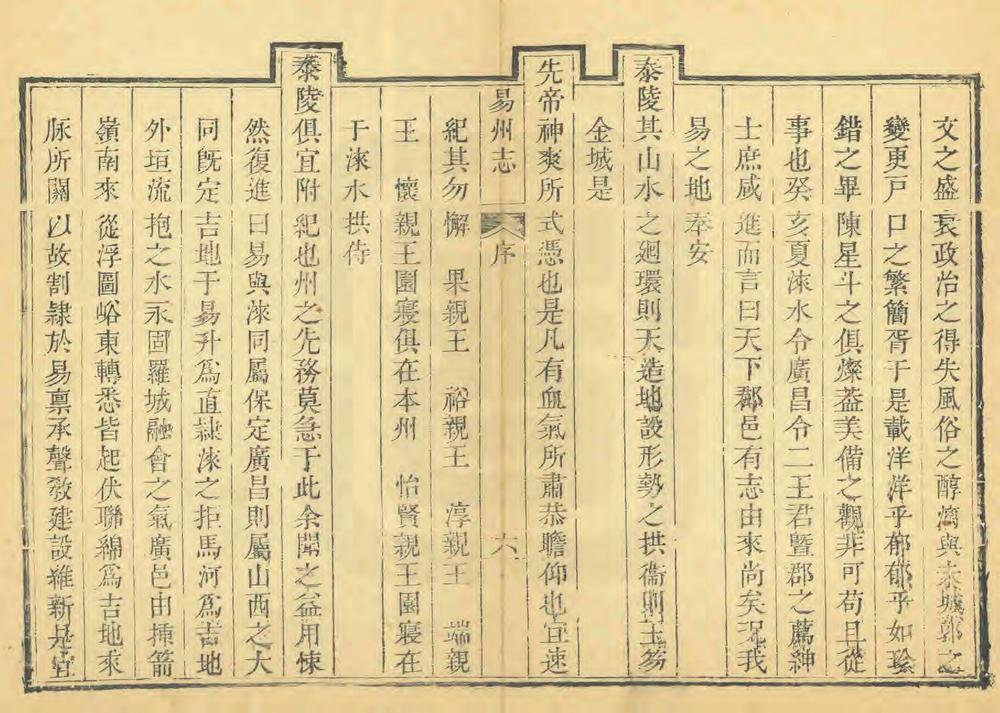 文之盛衰政治之得失風俗之醇漓與夫城郭之
變更戸口之繁簡胥于是載洋洋乎郁郁乎如珍
錯之畢陳星斗之俱燦葢美備之觀非可苟且從
事也癸亥夏淶水令廣昌令二王君曁郡之薦紳
士庶咸進而言曰天下郡邑有志由來尚矣況我
易之地奉安
泰陵其山水之廻環則天造地設形勢之拱衞則玉笏
金城是
先帝神爽所式憑也是凡有血氣所肅恭瞻仰也宜速
易州志 序 六
紀其勿懈 果親王 裕親王 淳親王 端親
王 懷親王園寢俱在本州 怡賢親王園寢在
于淶水拱侍
泰陵俱宜附紀也州之先務莫急于此余聞之益用悚
然復進曰易與淶同屬保定廣昌則屬山西之大
同旣定吉地于易升爲直隷淶之拒馬河爲吉地
外垣流抱之水永固羅城融會之氣廣邑由揷箭
嶺南來從浮圖峪東轉悉皆起伏聯綿爲吉地來
脉所關以故割隷於易禀承聲敎建設維新是宜